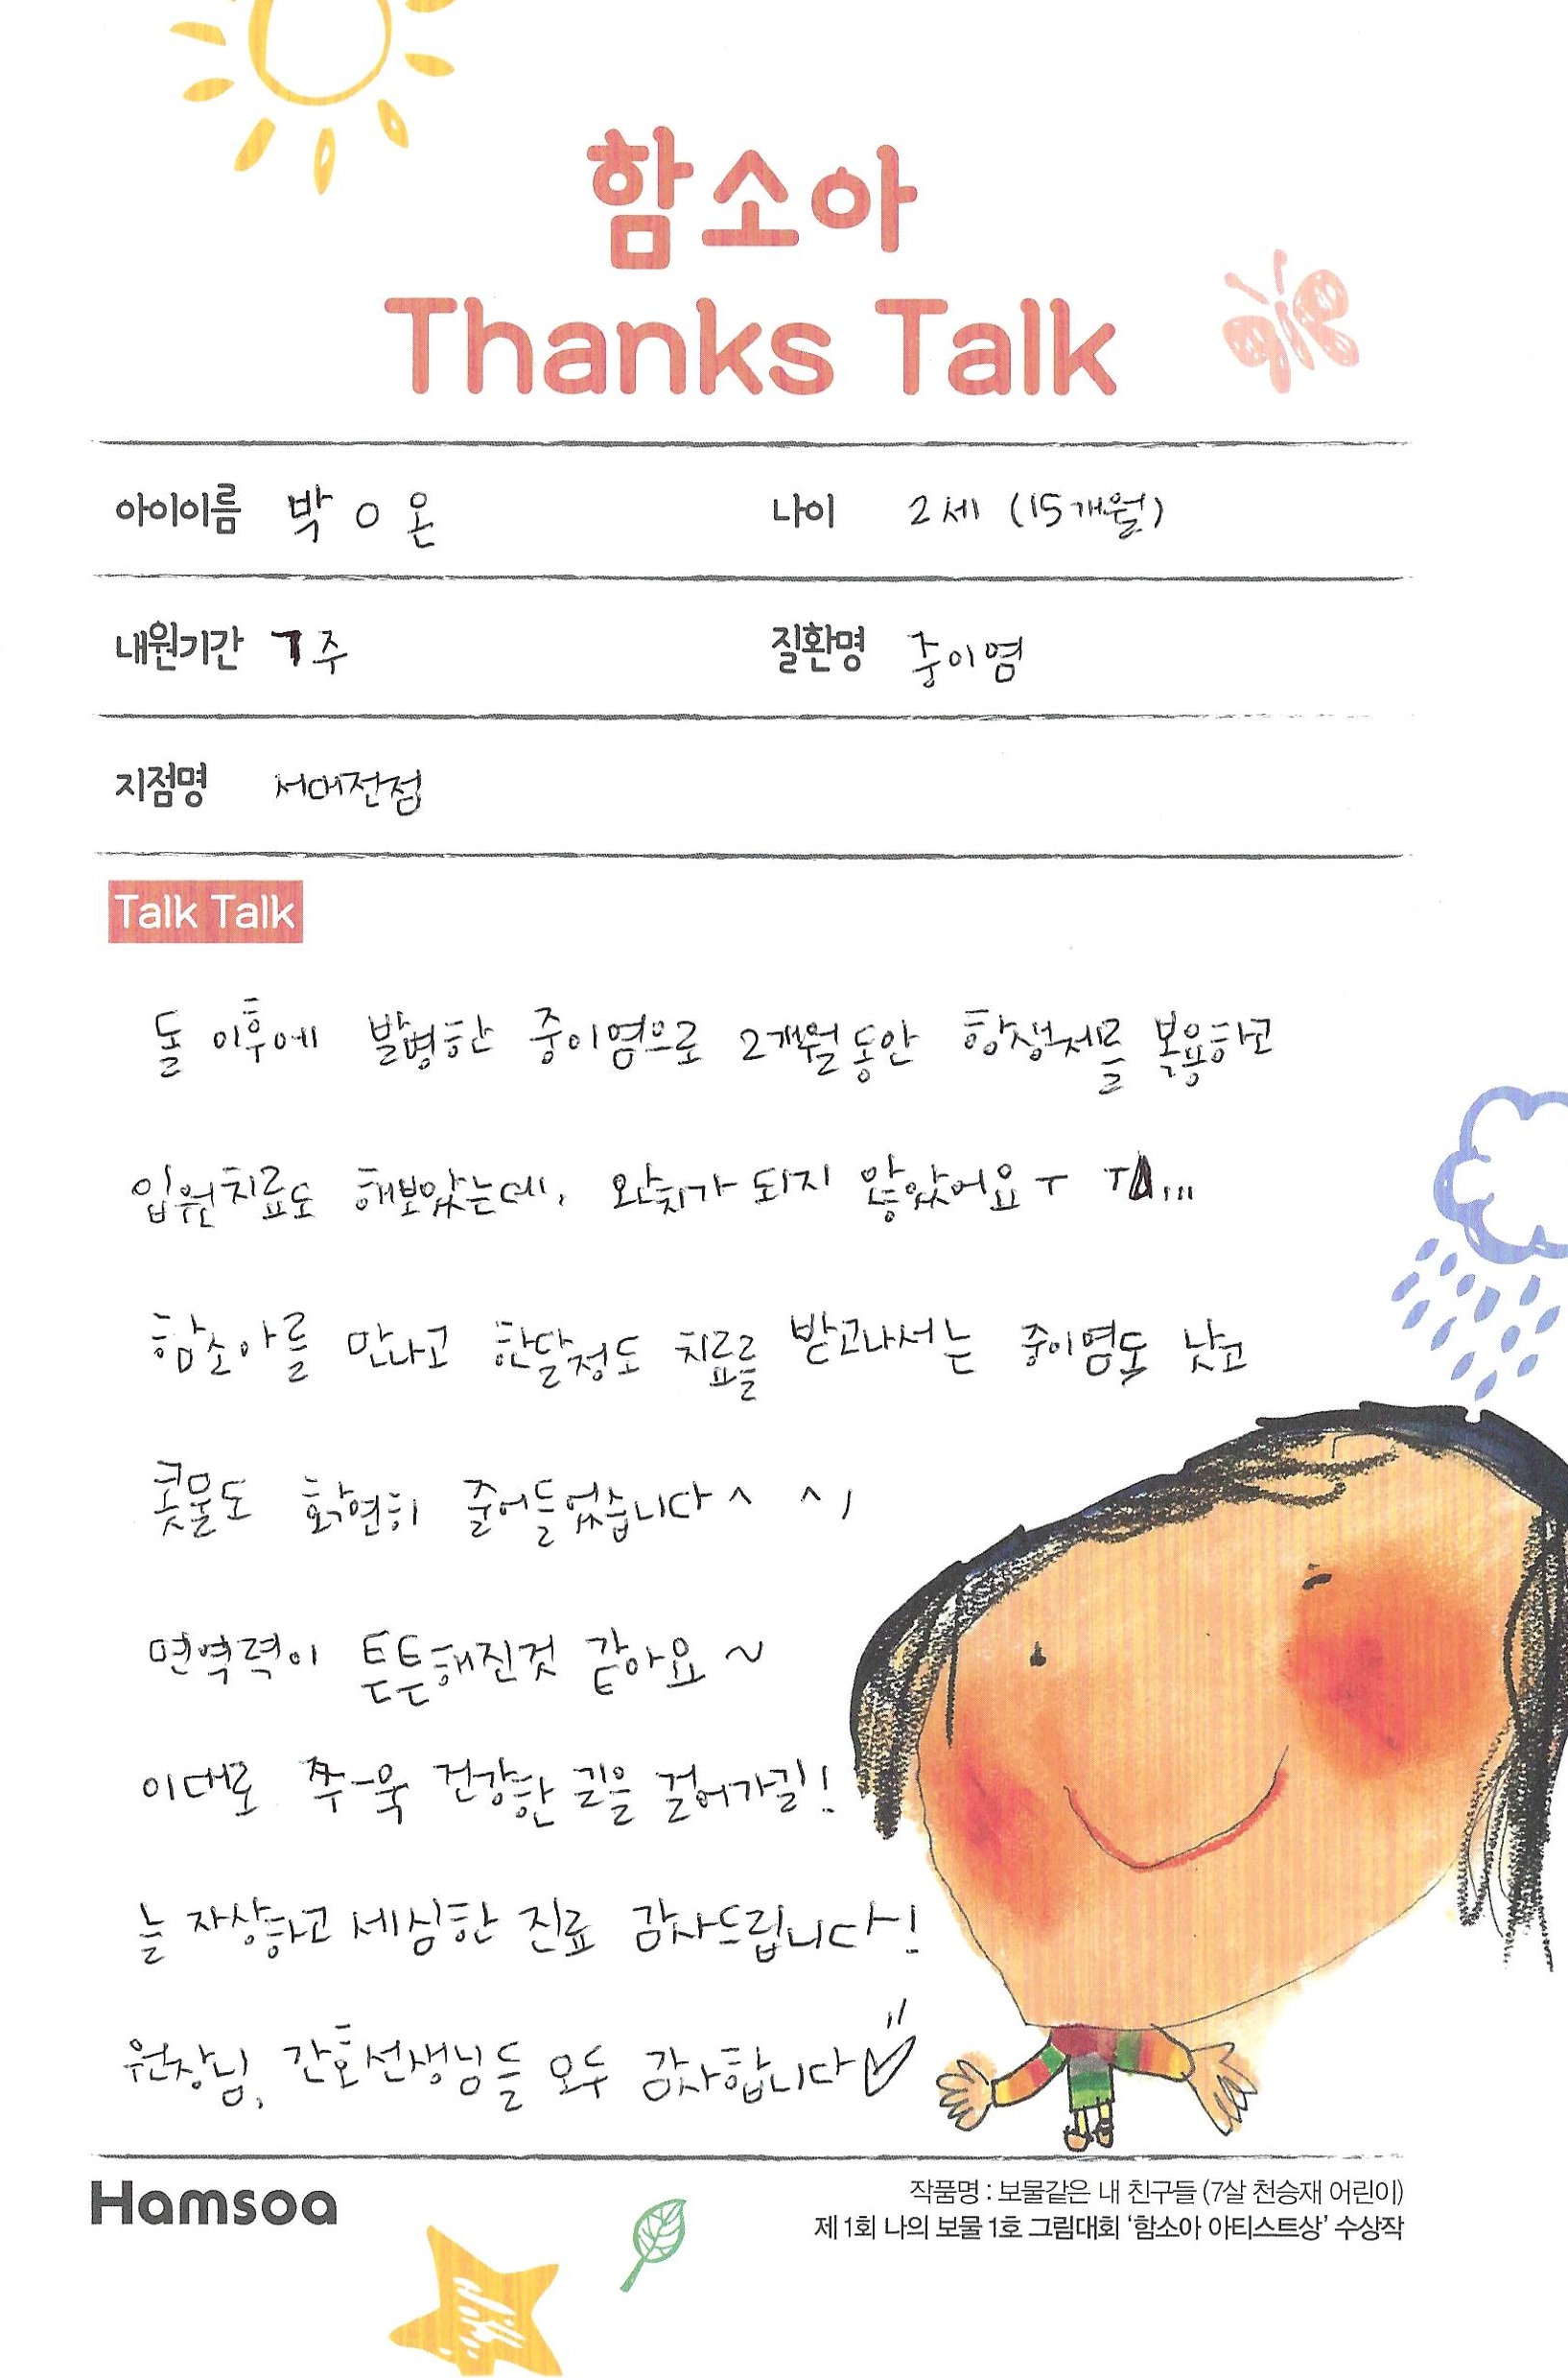 함소아
Thanks Talk
아이이름 박 O 온 나이 2세 (15개월)
내원기간 7주 질환명 중이염
지점명 서대전점
Talk Talk
돌 이후에 발병한 중이염으로 2개월동안 항생제를 복용하고
입원치료도 해보았는데, 완치가 되지 않았어요ㅜㅜ...
함소아를 만나고 한달정도 치료를 받고나서는 중이염도 낫고
콧물도 확연히 줄어들었습니다^^,
면역력이 튼튼해진것 같아요~
이대로 쭈-욱 건강한 길을 걸어가길!
늘 자상하고 세심한 진료 감사드립니다!
원장님, 간호선생님들 모두 감사합니다♡
Hamsoa
작품명 : 보물같은 내 친구들 (7살 천승재 어린이)
제 1회 나의 보물 1호 그림대회 '함소아 아티스트상' 수상작